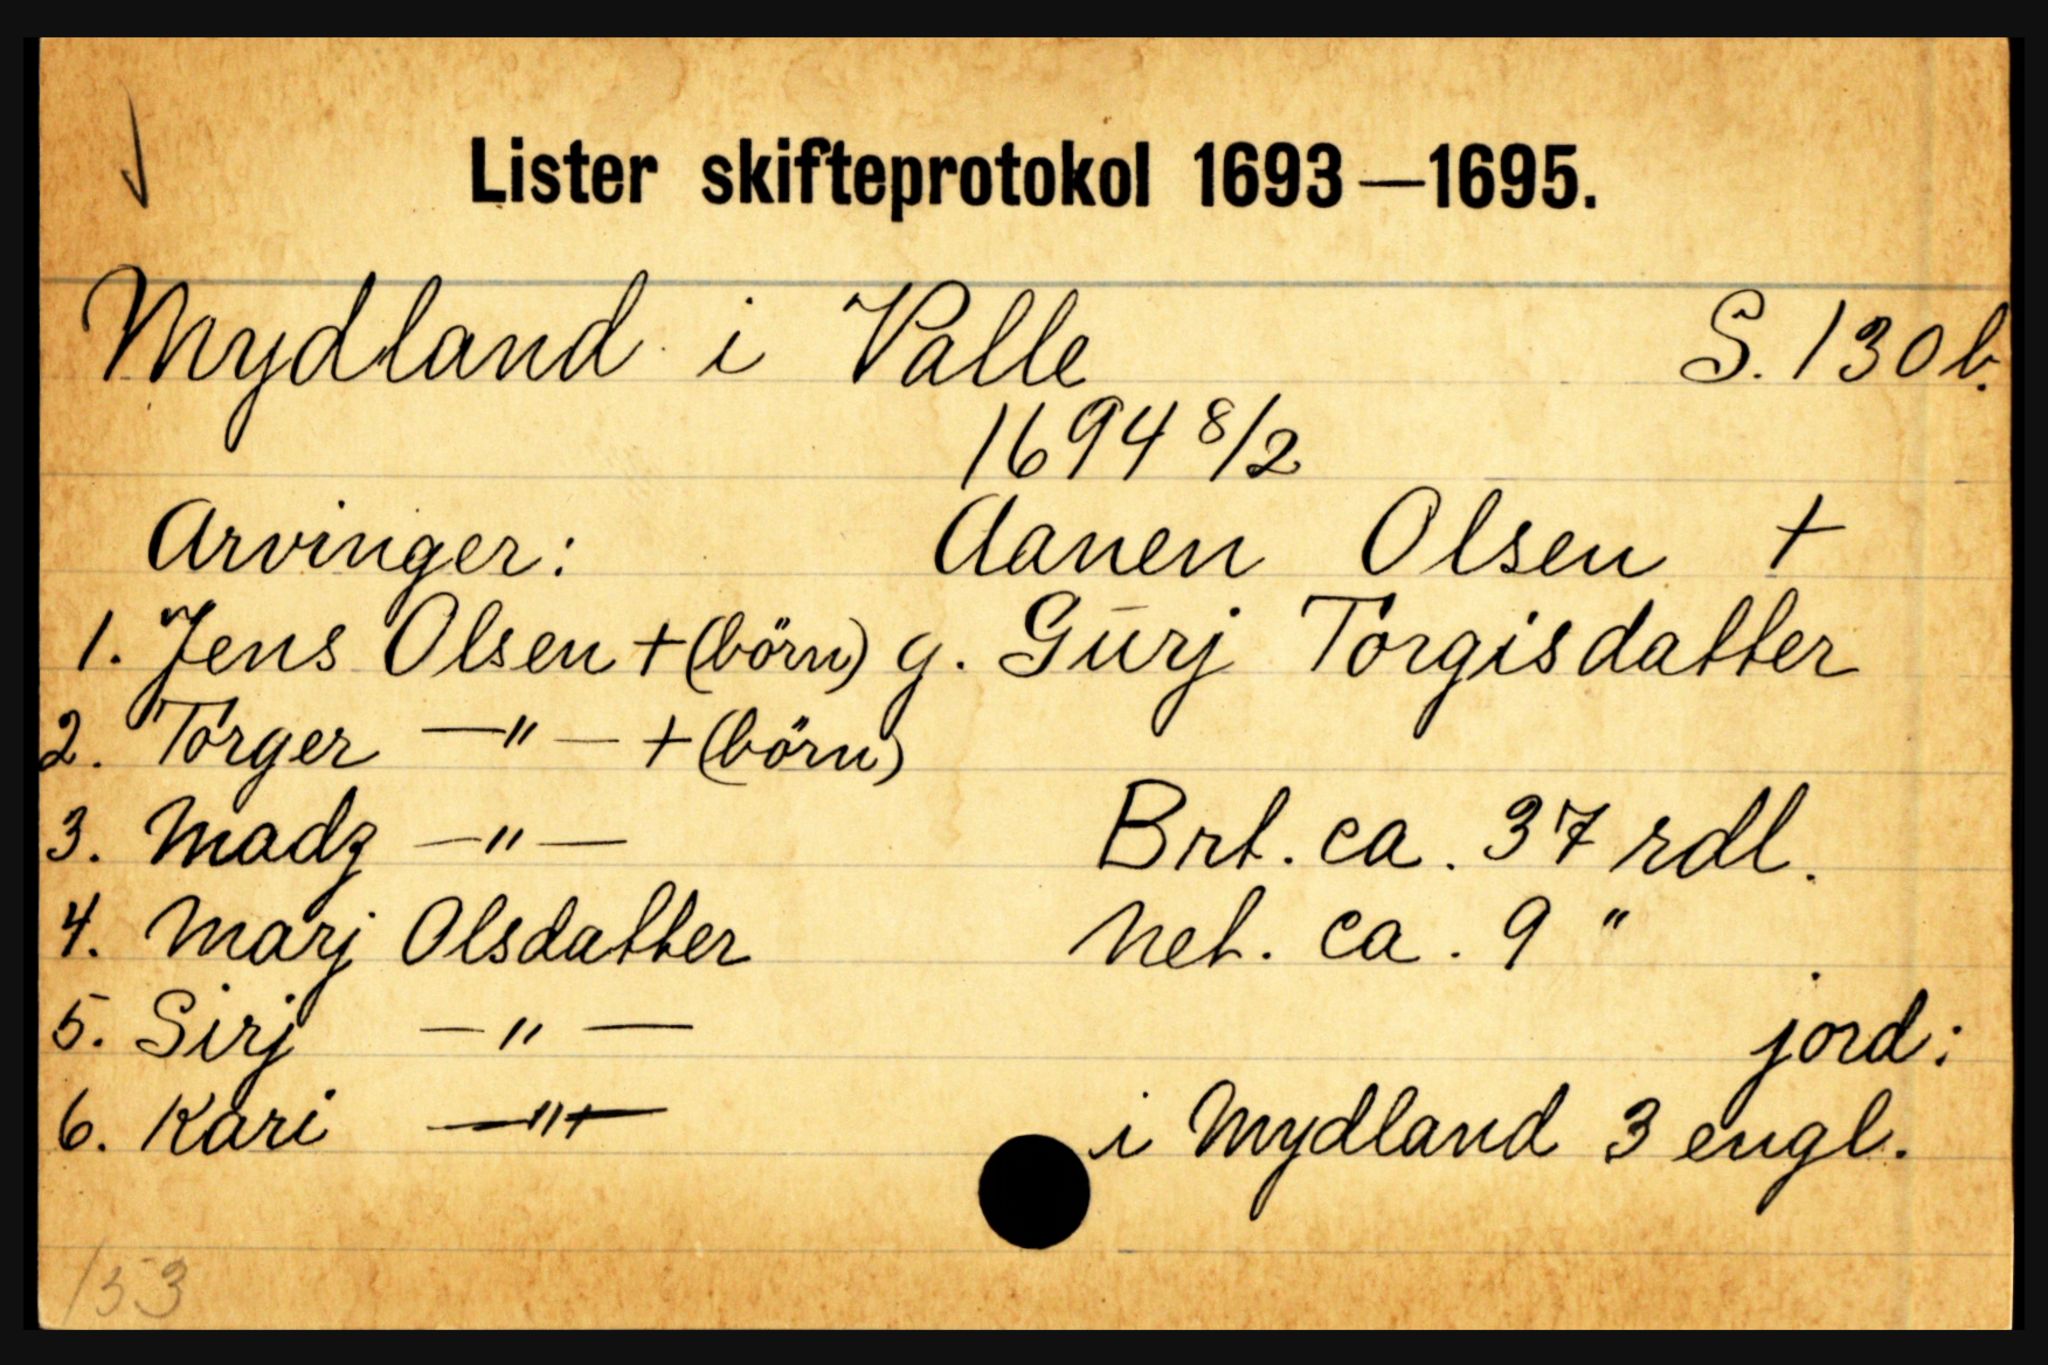 Lister skifteprotokol 1693—1695.
Mydland i Valle S. 130 b.
1694 8/2
Arvinger: Aanen Olsen +
1. Jens Olsen + (börn) g. Gurj Torgisdatter
2. Torger —"— + (börn)
3. Madz —"— Brt. ca. 37 rdl.
4. Marj Olsdatter Net. ca. 9 "
5. Sirj —"— jord:
6. Kari —"— i Mydland 3 engl.
153